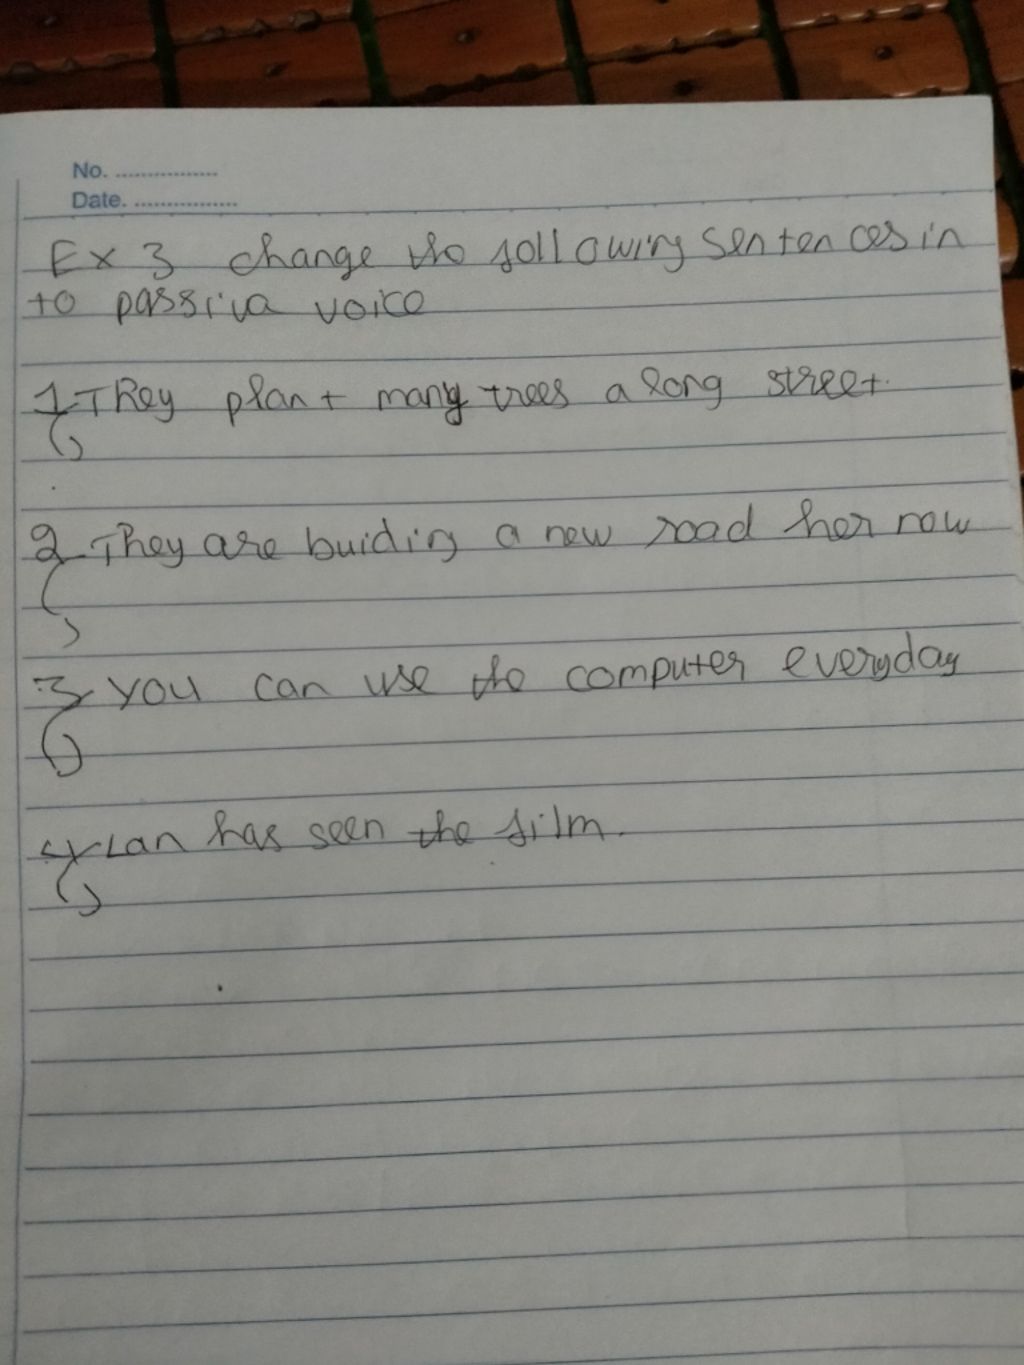 No. ................
Date. ................
Ex 3 change the following sentences in
to passiva voice
1 They plant many trees a long street.
2 They are buiding a new road her now
3 you can use the computer everyday
4 Lan has seen the film.